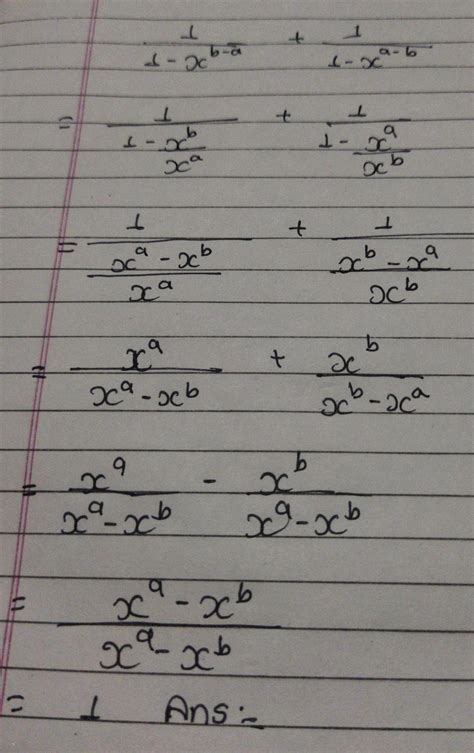 1/(1-x^(b-a)) + 1/(1-x^(a-b))
= 1/(1-x^b/x^a) + 1/(1-x^a/x^b)
= 1/((x^a-x^b)/x^a) + 1/((x^b-x^a)/x^b)
= x^a/(x^a-x^b) + x^b/(x^b-x^a)
= x^a/(x^a-x^b) - x^b/(x^a-x^b)
= (x^a-x^b)/(x^a-x^b)
= 1 Ans:-